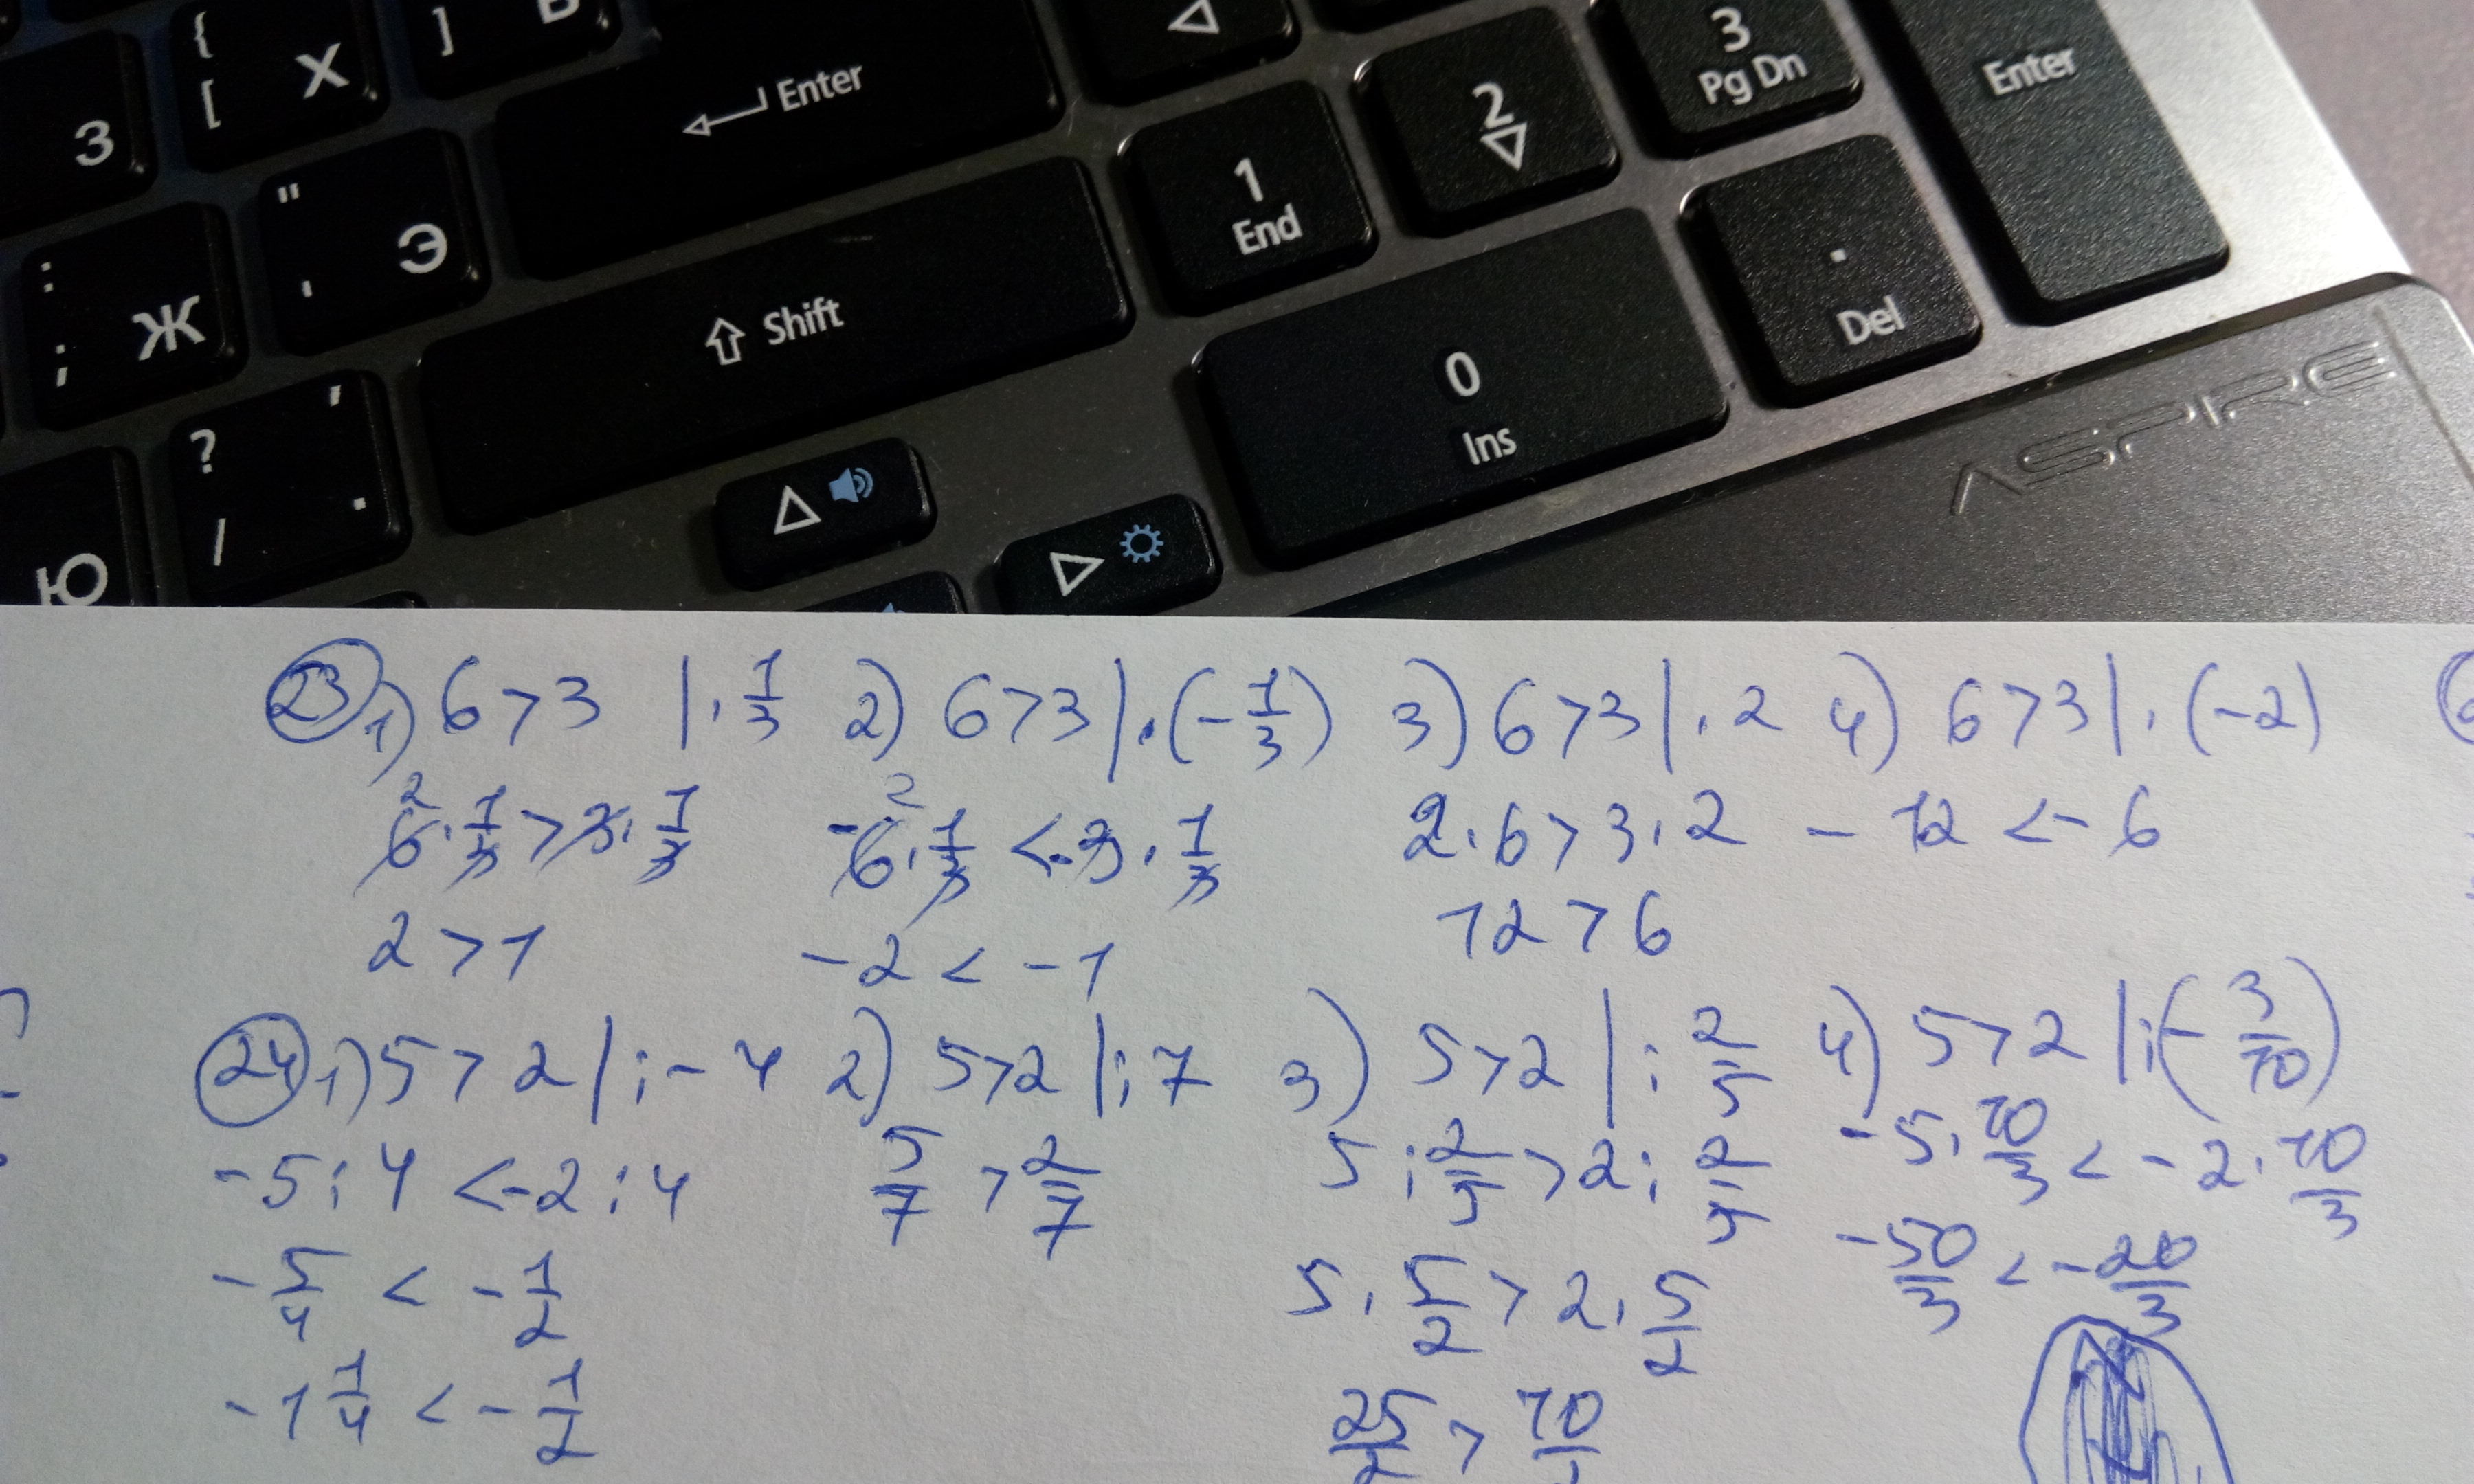 { [ Х ] 
З
← Enter
◁
2 ▽
3 Pg Dn
Enter
" ' Э
1 End
: ; Ж
⇧ Shift
0 Ins
. Del
ASPIRE
? / , .
Ю
△
▷
23 1) 6 > 3 | · 1/3 2) 6 > 3 | · (- 1/3) 3) 6 > 3 | · 2 4) 6 > 3 | · (-2)
2
6 · 1/3 > 3 · 1/3
2
-6 · 1/3 < -3 · 1/3
2 · 6 > 3 · 2
- 12 < - 6
2 > 1
- 2 < - 1
12 > 6
24 1) 5 > 2 | : - 4 2) 5 > 2 | : 7 3) 5 > 2 | : 2/5 4) 5 > 2 | : (- 3/10)
- 5 : 4 < - 2 : 4
5/7 > 2/7
5 : 2/5 > 2 : 2/5
- 5 · 10/3 < - 2 · 10/3
- 5/4 < - 1/2
5 · 5/2 > 2 · 5/2
- 50/3 < - 20/3
- 1 1/4 < - 1/2
25/2 > 10/